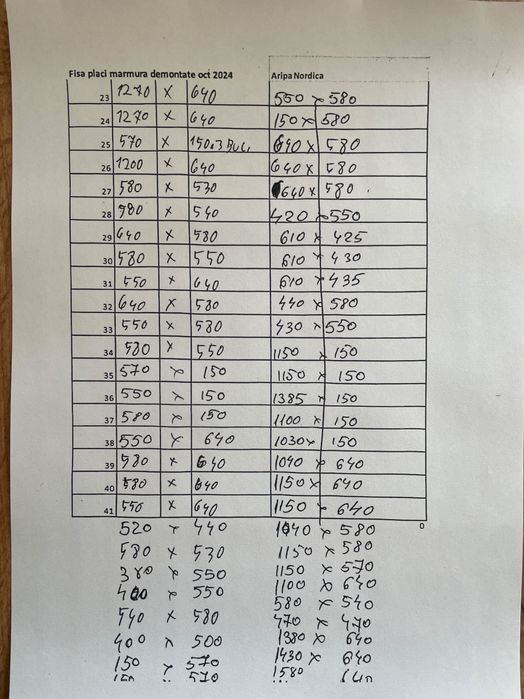 Fisa placi marmura demontate oct 2024 Aripa Nordica
23 1270 x 640 550 x 580
24 1270 x 640 150 x 580
25 570 x 150 640 x 580
26 1200 x 640 640 x 580
27 580 x 530 640 x 580
28 980 x 540 420 x 550
29 640 x 580 610 x 425
30 580 x 550 610 x 430
31 550 x 640 610 x 435
32 640 x 580 440 x 580
33 550 x 580 430 x 550
34 580 x 550 1150 x 150
35 570 x 150 1150 x 150
36 550 x 150 1385 x 150
37 580 x 150 1100 x 150
38 550 x 640 1030 x 150
39 580 x 640 1040 x 640
40 580 x 640 1150 x 640
41 550 x 640 1150 x 640
0
520 x 440 1040 x 580
580 x 530 1150 x 580
380 x 550 1150 x 570
400 x 550 1100 x 640
540 x 580 580 x 540
400 x 500 470 x 470
150 x 570 1380 x 640
150 570 1430 x 640
1580 640